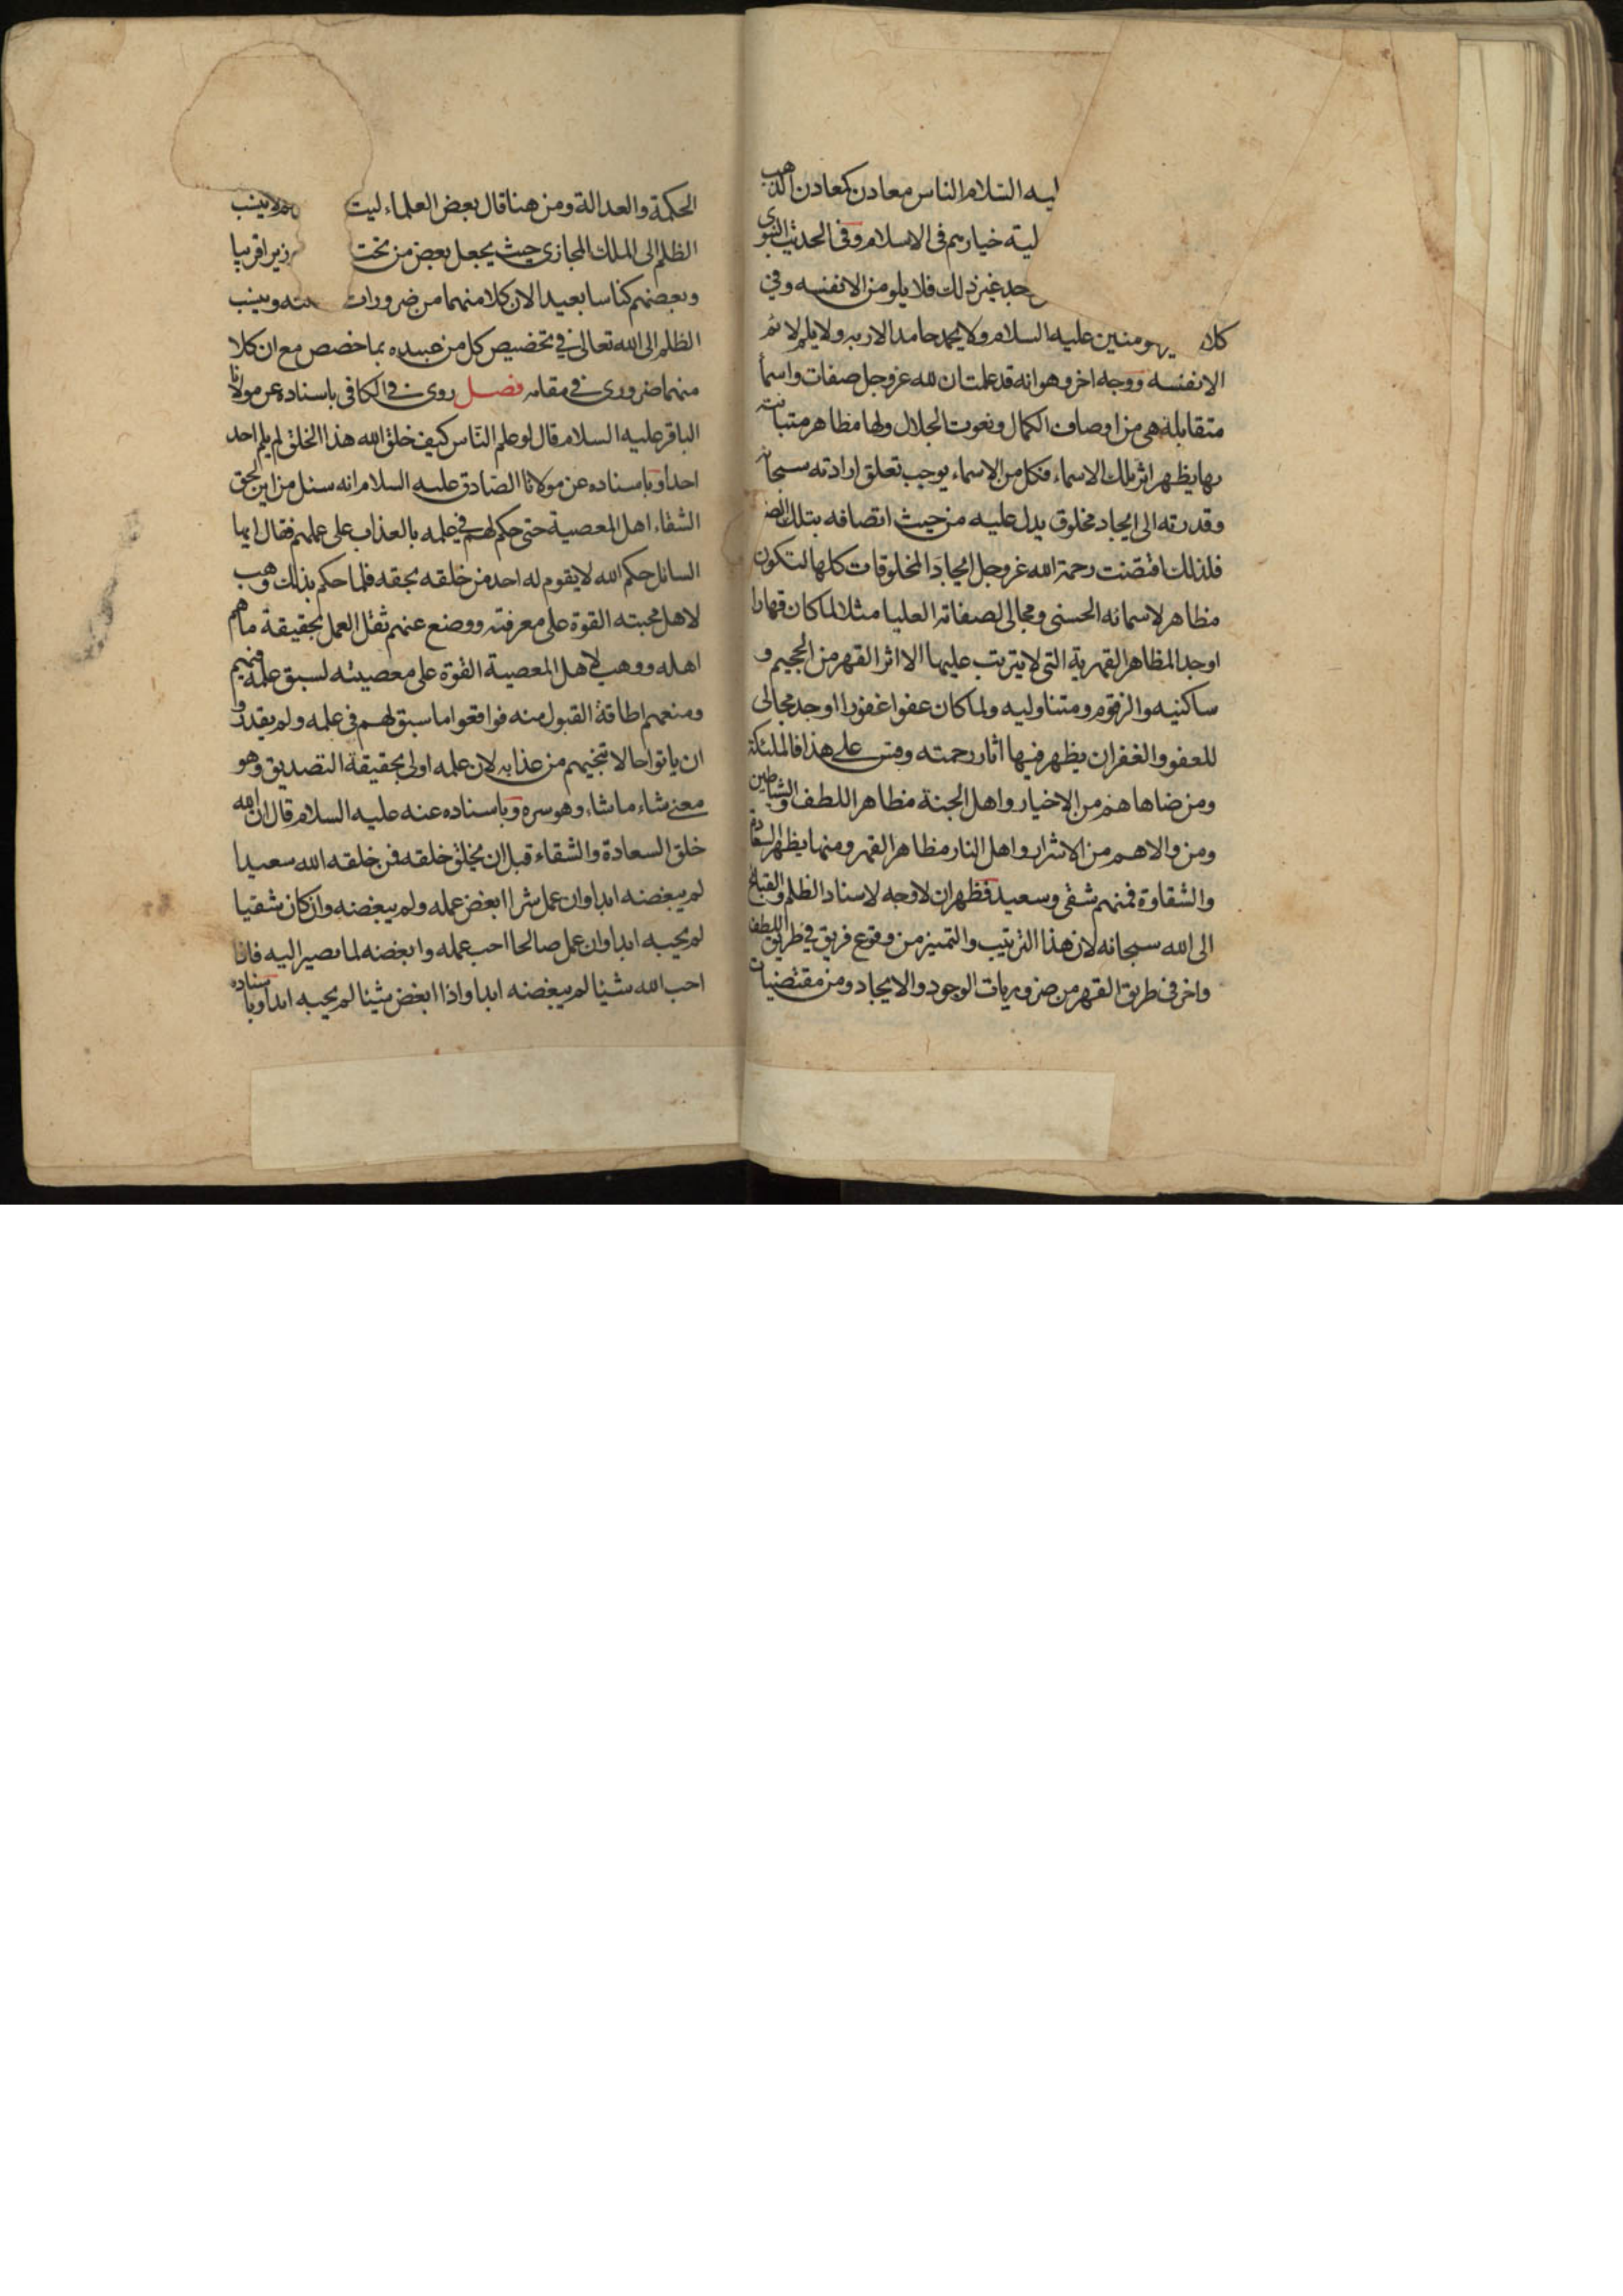 ليه السلام الناس معادن كمعادن الذهب
لية خيارهم في الاسلام وفي الحديث النبوي
جد غير ذلك فلا يلومن الا نفسه وفي
كلا المومنين عليه السلام ولا يحمد حامد الا ربه ولا يلم لائم
الا نفسه ووجه اخر وهو انه قد علمت ان لله عز وجل صفات واسماً
متقابلة هي من اوصاف الكمال ونعوت الجلال ولها مظاهر متباينة
بها يظهر اثر تلك الاسماء فكل من الاسماء يوجب تعلق ارادته سبحانه
وقدرته الى ايجاد مخلوق يدل عليه من حيث اتصافه بتلك الصفة
فلذلك اقتضت رحمة الله عز وجل ايجاد المخلوقات كلها لتكون
مظاهر لاسمائه الحسنى ومجالي لصفاته العليا مثلا لما كان قهارا
اوجد المظاهر القهرية التي لا يترتب عليها الا اثر القهر من الجحيم و
ساكنيه والزقوم ومتناوليه ولما كان عفوا غفورا اوجد مجالي
للعفو والغفران يظهر فيها اثار رحمته وقس على هذا فالملئكة
ومن ضاهاهم من الاخيار واهل الجنة مظاهر اللطف والشياطين
ومن والاهم من الاشرار واهل النار مظاهر القهر ومنها يظهر السعادة
والشقاوة فمنهم شقي وسعيد فظهر ان لا وجه لاسناد الظلم والقبائح
الى الله سبحانه لان هذا الترتيب والتمييز من وقوع فريق في طريق اللطف
واخر في طريق القهر من ضروريات الوجود والايجاد ومن مقتضيات
الحكمة والعدالة ومن هنا قال بعض العلماء ليت لا ينسب
الظلم الى الملك المجازي حيث يجعل بعض من تحت وزيرا قريبا
وبعضهم كناسا بعيدا لان كلا منهما من ضرورات وينسب
الظلم الى الله تعالى في تخصيص كل من عبيده بما خصص مع ان كلا
منهما ضروري في مقامه فصل روى في الكافي باسناده عن مولانا
الباقر عليه السلام قال لو علم الناس كيف خلق الله هذا الخلق لم يلم احد
احدا وباسناده عن مولانا الصادق عليه السلام انه سئل من اين لحق
الشقاء اهل المعصية حتى حكم لهم في علمه بالعذاب على عملهم فقال ايها
السائل حكم الله لا يقوم له احد من خلقه بحقه فلما حكم بذلك وهب
لاهل محبته القوة على معرفته ووضع عنهم ثقل العمل بحقيقة ما هم
اهله ووهب لاهل المعصية القوة على معصيته لسبق علمه فيهم
ومنعهم اطاقة القبول منه فواقعوا ما سبق لهم في علمه ولم يقدروا
ان ياتوا حالا تنجيهم من عذابه لان علمه اولى بحقيقة التصديق وهو
معنى شاء ما شاء وهو سره وباسناده عنه عليه السلام قال ان الله
خلق السعادة والشقاء قبل ان يخلق خلقه فمن خلقه الله سعيدا
لم يبغضه ابدا وان عمل شرا ابغض عمله ولم يبغضه وان كان شقيا
لم يحبه ابدا وان عمل صالحا احب عمله وابغضه لما يصير اليه فاذا
احب الله شيئا لم يبغضه ابدا واذا ابغض شيئا لم يحبه ابدا وباسناده